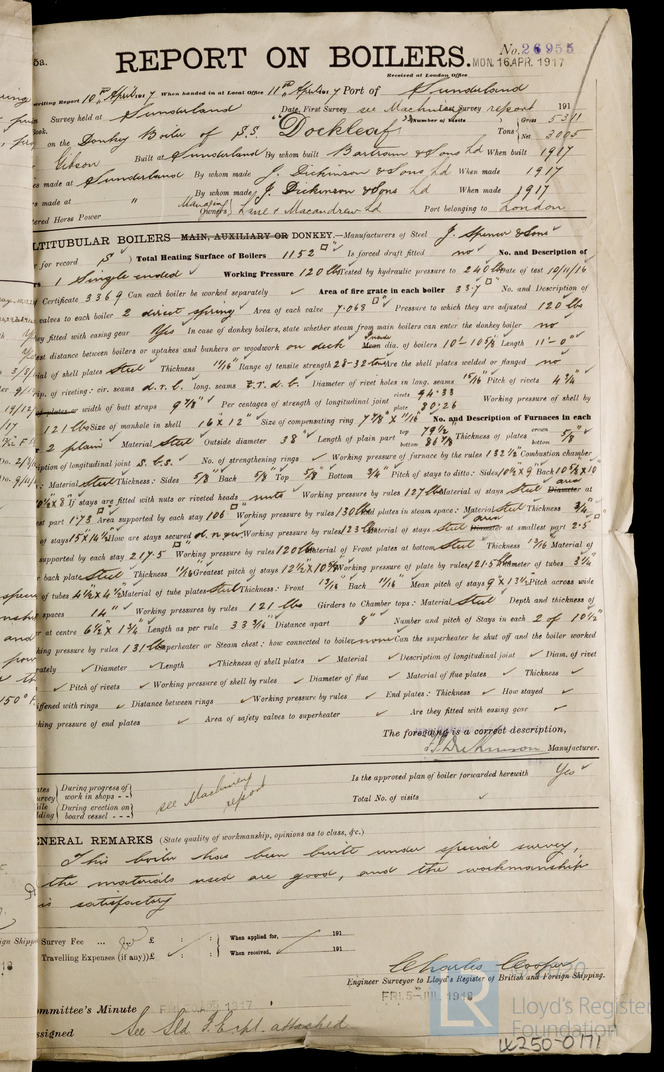 5a.
REPORT ON BOILERS.
No. 26955
Received at London Office MON. 16 APR. 1917
writing Report 10th April 1917 When handed in at Local Office 11th April 1917 Port of Sunderland
Survey held at Sunderland Date, First Survey see Machinery Survey report 191
Book.
on the Donkey Boiler of S.S. "Dockleaf" (Number of Visits ) Tons Gross 5311 Net 3005
Gibson Built at Sunderland By whom built Bartram & Sons Ld When built 1917
es made at Sunderland By whom made J. Dickinson & Sons Ld When made 1917
rs made at " By whom made J. Dickinson & Sons Ld When made 1917
tered Horse Power Managing Owners & Macandrew Ld Port belonging to London
LTITUBULAR BOILERS MAIN, AUXILIARY OR DONKEY.—Manufacturers of Steel J. Spencer & Sons
r for record S ) Total Heating Surface of Boilers 1152 □" Is forced draft fitted no No. and Description of
rs 1 Single ended Working Pressure 120 lbs Tested by hydraulic pressure to 240 lbs Date of test 10/11/16
Certificate 3369 Can each boiler be worked separately ✓ Area of fire grate in each boiler 33.7 □" No. and Description of
valves to each boiler 2 direct spring Area of each valve 7.068 □" Pressure to which they are adjusted 120 lbs
hey fitted with easing gear Yes In case of donkey boilers, state whether steam from main boilers can enter the donkey boiler no
est distance between boilers or uptakes and bunkers or woodwork on deck Inside Mean dia. of boilers 10'-10 5/8" Length 11'-0"
ial of shell plates Steel Thickness 11/16" Range of tensile strength 28-32 tons Are the shell plates welded or flanged no
rip. of riveting: cir. seams d.r.l. long. seams T.r.d.b. Diameter of rivet holes in long. seams 15/16" Pitch of rivets 4 3/4"
or width of butt straps 9 7/8" Per centages of strength of longitudinal joint rivets 94.33 plate 80.26 Working pressure of shell by
121 lbs Size of manhole in shell 16" x 12" Size of compensating ring 7 7/8" x 11/16" No. and Description of Furnaces in each
r 2 plain Material Steel Outside diameter 38" Length of plain part top 79 1/2" bottom 81 7/8" Thickness of plates crown bottom 5/8"
iption of longitudinal joint s.b.s. No. of strengthening rings ✓ Working pressure of furnace by the rules 132 1/2 Combustion chamber
: Material Steel Thickness: Sides 5/8" Back 5/8" Top 5/8" Bottom 3/4" Pitch of stays to ditto: Sides 10 1/2" x 9" Back 10 5/8" x 10
If stays are fitted with nuts or riveted heads nuts Working pressure by rules 127 lbs Material of stays Steel area Diameter at
est part 1.73 Area supported by each stay 106 □" Working pressure by rules 130 lbs End plates in steam space: Material Steel Thickness 3/4"
of stays 15" x 14 1/2" How are stays secured d.n.&w. Working pressure by rules 123 lbs Material of stays Steel area Diameter at smallest part 2.5
supported by each stay 217.5 □" Working pressure by rules 120 lbs Material of Front plates at bottom Steel Thickness 13/16" Material of
r back plate Steel Thickness 11/16" Greatest pitch of stays 12 1/2" x 10 5/8" Working pressure of plate by rules 121.5 lbs Diameter of tubes 3 1/4"
of tubes 4 1/2" x 4 1/2" Material of tube plates Steel Thickness: Front 13/16" Back 11/16" Mean pitch of stays 9" x 13 1/2" Pitch across wide
spaces 14" Working pressures by rules 121 lbs Girders to Chamber tops: Material Steel Depth and thickness of
r at centre 6 1/2" x 1 3/4" Length as per rule 33 3/16" Distance apart 8" Number and pitch of Stays in each 2 of 10 1/2"
king pressure by rules 131 lbs Superheater or Steam chest: how connected to boiler none Can the superheater be shut off and the boiler worked
rately ✓ Diameter ✓ Length ✓ Thickness of shell plates ✓ Material ✓ Description of longitudinal joint ✓ Diam. of rivet
✓ Pitch of rivets ✓ Working pressure of shell by rules ✓ Diameter of flue ✓ Material of flue plates ✓ Thickness ✓
iffened with rings ✓ Distance between rings ✓ Working pressure by rules ✓ End plates: Thickness ✓ How stayed ✓
rking pressure of end plates ✓ Area of safety valves to superheater ✓ Are they fitted with easing gear ✓
The foregoing is a correct description,
J. Dickinson Manufacturer.
During progress of work in shops - -
During erection on board vessel - - -
see Machinery report
Is the approved plan of boiler forwarded herewith Yes ✓
Total No. of visits ✓
ENERAL REMARKS (State quality of workmanship, opinions as to class, &c.)
This boiler has been built under special survey,
the materials used are good, and the workmanship
is satisfactory
Survey Fee ... £ : : When applied for, 191
Travelling Expenses (if any) £ : : When received, 191
Charles Cooper
Engineer Surveyor to Lloyd's Register of British and Foreign Shipping.
ommittee's Minute
FRI. 5-JUL. 1918
ssigned See Sld. F.E. rpt. attached
LR Lloyd's Register Foundation
W250-0171